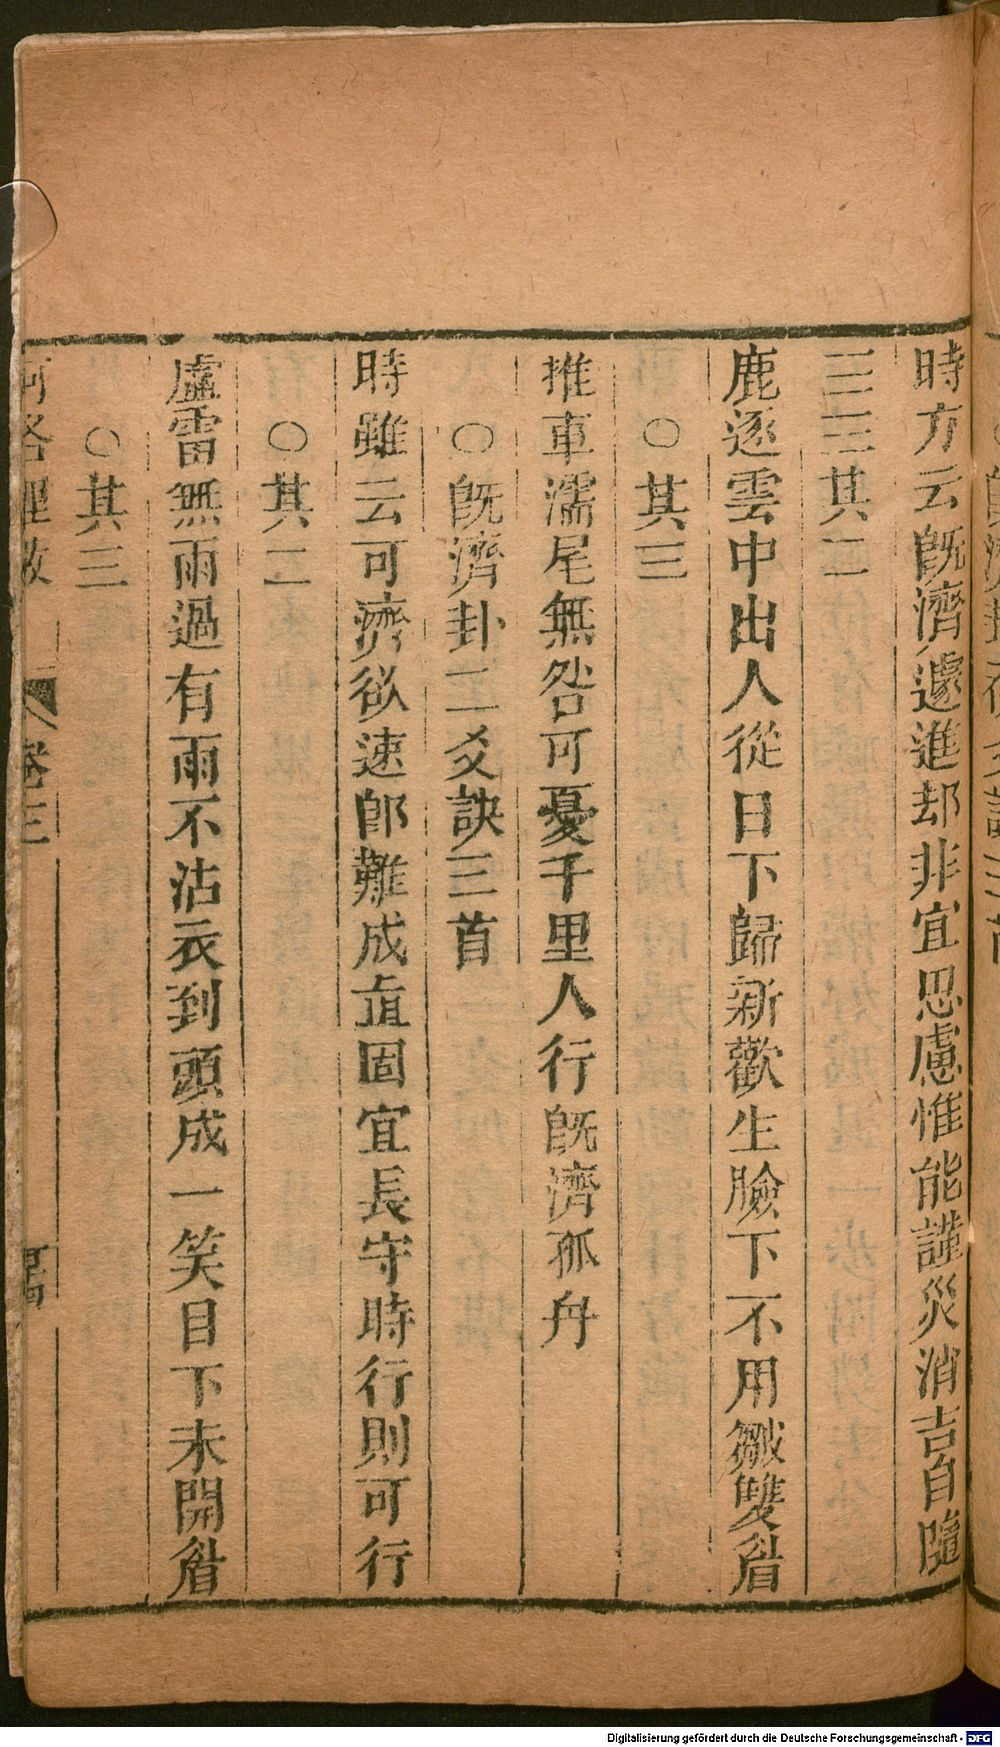 時方云旣濟遽進却非宜思慮惟能謹災消吉自隨
三三其二
鹿逐雲中出人從日下歸新歡生臉下不用皺雙眉
○其三
推車濡尾無咎可憂千里人行旣濟孤舟
○旣濟卦二爻訣三首
時雖云可濟欲速卽難成直固宜長守時行則可行
○其二
虛雷無雨過有雨不沾衣到頭成一笑目下未開眉
○其三
河洛理數 卷三
Digitalisierung gefördert durch die Deutsche Forschungsgemeinschaft - DFG